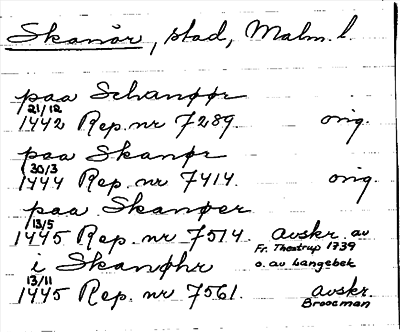 Skanör, stad, Malm. l.
paa Schanøør
21/12
1442 Rep. nr 7289. orig.
paa Skanør
30/3
1444 Rep. nr 7414. orig.
paa Skanøer
13/5
1445 Rep. nr 7514. avskr. av
Fr. Thestrup 1739
i Skanøhr o. av Langebek
13/11
1445 Rep. nr 7561. avskr.
Brooeman